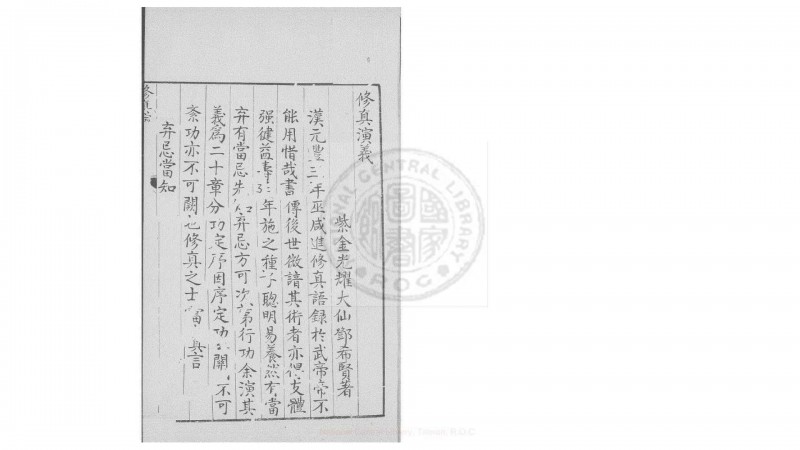 修真演義
紫金光耀大仙鄧希賢著
漢元豐三年巫咸進修真語錄於武帝帝不
能用惜哉書傳後世微諳其術者亦得支體
强健益壽 年施之種子聰明易養然有當
弃有當忌先 弃忌方可次第行功余演其
義為二十章分功定序因序定功 關 不可
紊功亦不可闕也修真之士 其言
弃忌當知
NATIONAL CENTRAL LIBRARY
國家圖書館
R.O.C.
National Central Library, Taiwan, R.O.C.